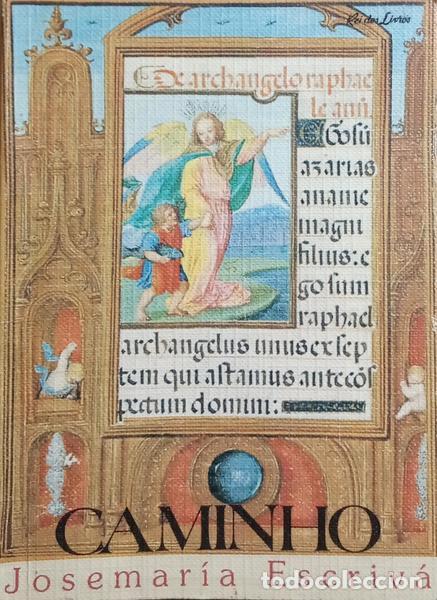 Rei dos Livros
De archangelo raphae
le an̄.
EGo sū
azarias
ananie
magni
filius: e
go sum
raphael
archangelus unus ex sep
tem qui astamus ante cōs
pectum domini:
CAMINHO
Josemaría Escrivá
todocoleccion